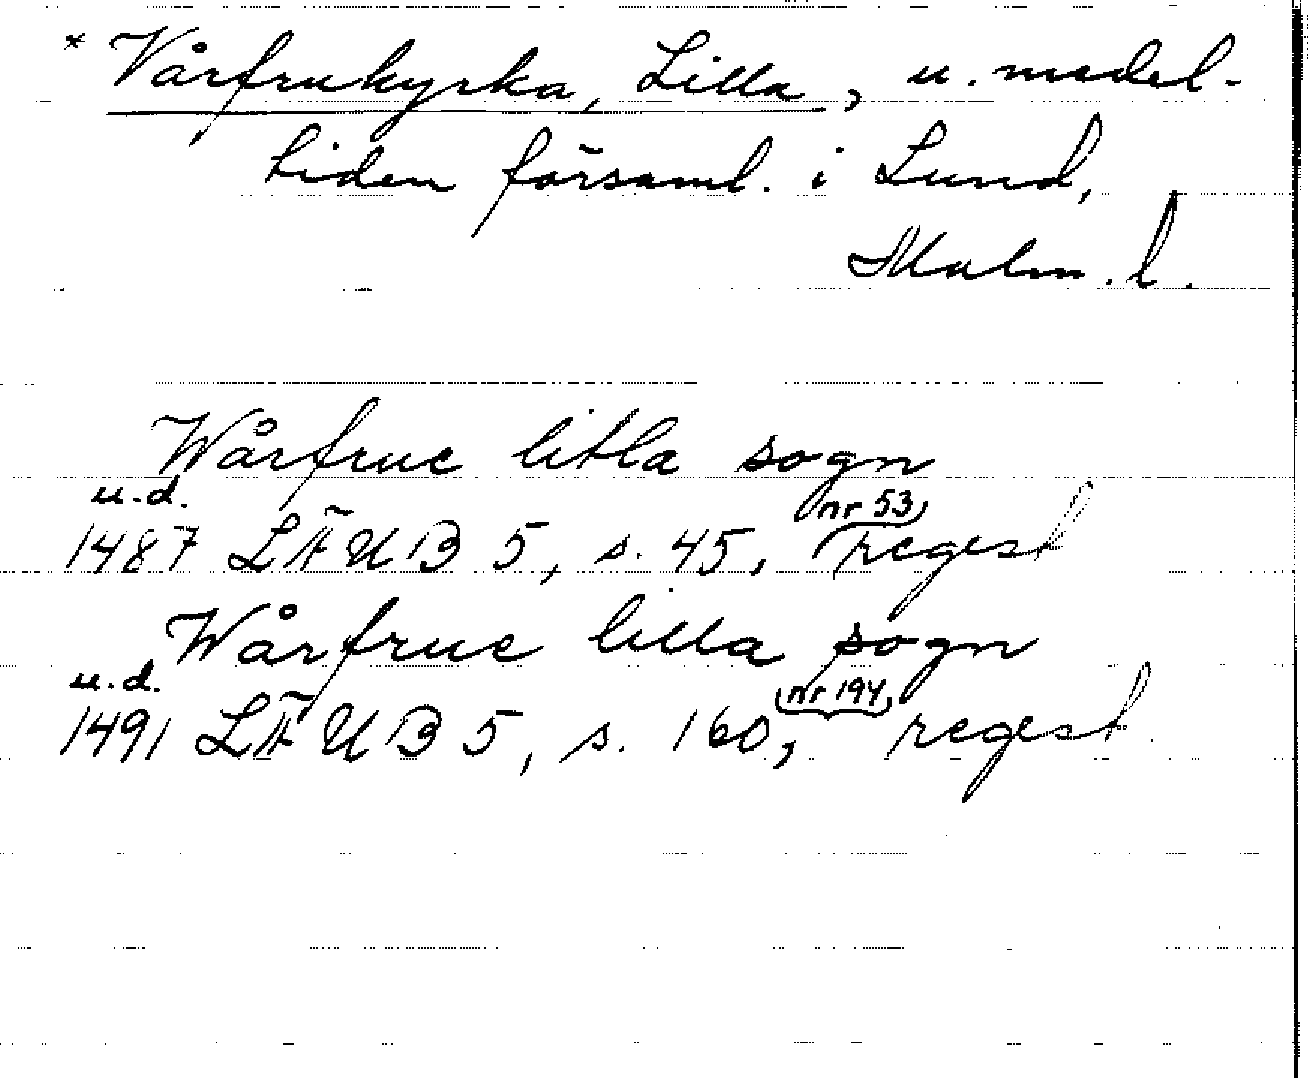 * Vårfrukyrka, Lilla, u. medel-
tiden församl. i Lund,
Malm. l.
Wårfrue litla sogn
u.d.
1487 LÄUB 5, s. 45, nr 53, regest
Wårfrue lilla sogn
u.d.
1491 LÄUB 5, s. 160, nr 194, regest.